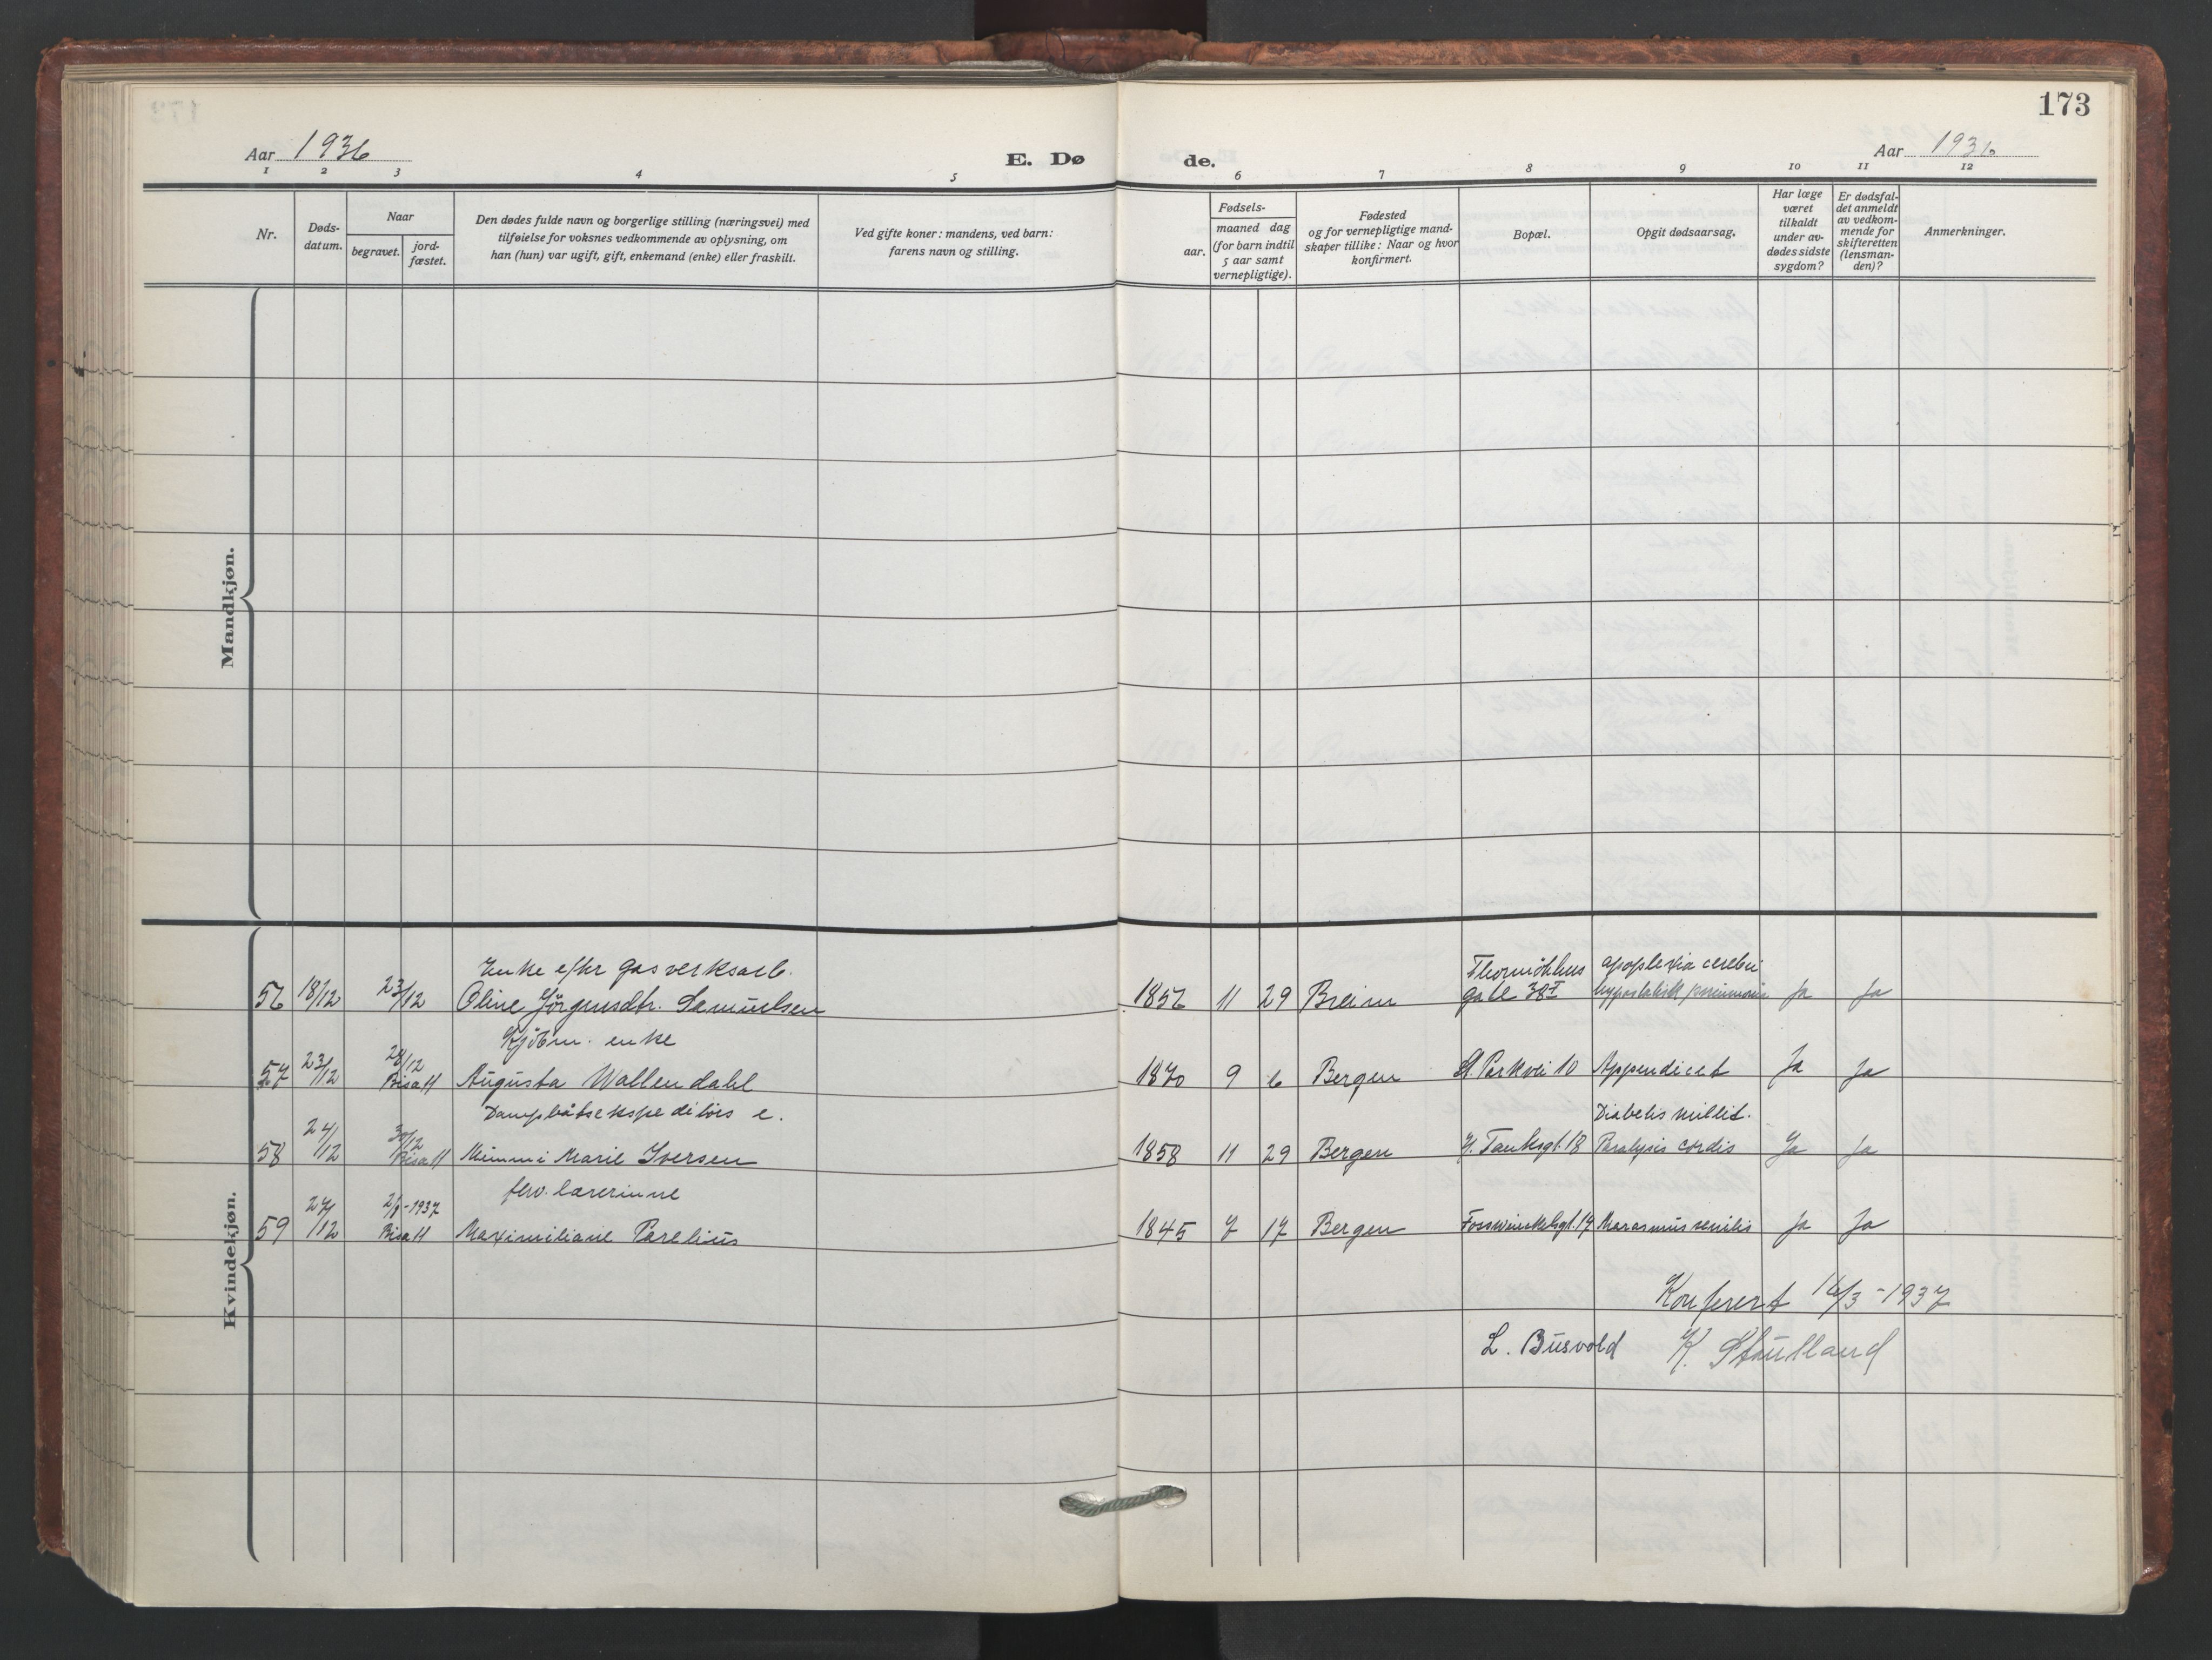 173
Aar 1936
E. Dø de.
Aar 1936
1 2 3 4 5 6 7 8 9 10 11 12
Nr.
Døds-
datum.
Naar
begravet.
jord-
fæstet.
Den dødes fulde navn og borgerlige stilling (næringsvei) med
tilføielse for voksnes vedkommende av oplysning, om
han (hun) var ugift, gift, enkemand (enke) eller fraskilt.
Ved gifte koner: mandens, ved barn:
farens navn og stilling.
Fødsels-
aar.
maaned dag
(for barn indtil
5 aar samt
vernepligtige).
Fødested
og for vernepligtige mand-
skaper tillike: Naar og hvor
konfirmert.
Bopæl.
Opgit dødsaarsag.
Har læge
været
tilkaldt
under av-
dødes sidste
sygdom?
Er dødsfal-
det anmeldt
av vedkom-
mende for
skifteretten
(lensman-
den)?
Anmerkninger.
Mandkjøn.
Kvindekjøn.
Enke efter gasverksarb. Thormöhlens apoplexia cerebri
56 18/12 23/12 Oline Jörgensdtr. Samuelsen 1857 11 29 Breim gate 38 I hypostatisk pneumoni Ja Ja
Kjöbm. enke
57 23/12 28/12 Bisatt Augusta Wallendahl 1870 9 6 Bergen St. Parkvei 10 Appendicit Ja Ja
Dampbåtsekspeditörs e. Diabetis millit.
58 24/12 30/12 Bisatt Mimmi Marie Iversen 1858 11 29 Bergen J. Tanksgt. 18 Paralysis cordis Ja Ja
fhv. lærerinne
59 27/12 2/1-1937 Bisatt Maximiliane Parelius 1845 7 17 Bergen Fosswinkelsgt. 19 Marasmus senilis Ja Ja
Konferert 16/3-1937
L. Busvold K. Støutland